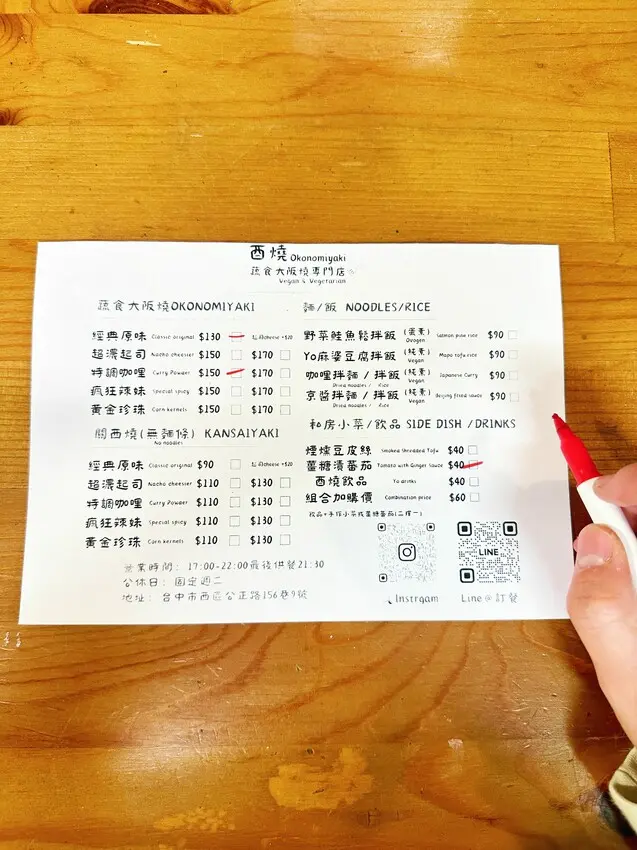 酉燒 Okonomiyaki
蔬食大阪燒專門店
Vegan & Vegetarian
蔬食大阪燒OKONOMIYAKI
經典原味 Classic original $130
超濃起司 Nacho cheesier $150 $170
特調咖哩 Curry Powder $150 $170
瘋狂辣妹 Special spicy $150 $170
黃金珍珠 Corn kernels $150 $170
關西燒(無麵條) KANSAIYAKI
No noodles
經典原味 Classic original $90
超濃起司 Nacho cheesier $110 $130
特調咖哩 Curry Powder $110 $130
瘋狂辣妹 Special spicy $110 $130
黃金珍珠 Corn kernels $110 $130
營業時間: 17:00-22:00最後供餐21:30
公休日: 固定週二
地址: 台中市西區公正路156巷9號
麵/飯 NOODLES/RICE
野菜鮭魚鬆拌飯 (蛋素) Salmon pine rice $90
Ovogen
Yo麻婆豆腐拌飯 (純素) Mapo tofu rice $90
Vegan
咖哩拌麵 / 拌飯 (純素) Japanese Curry $90
Dried noodles / Rice Vegan
京醬拌麵 / 拌飯 (純素) Beijing fried sauce $90
Dried noodles / Rice Vegan
私房小菜/飲品 SIDE DISH /DRINKS
煙燻豆皮絲 Smoked Shredded Tofu $40
薑糖漬蕃茄 Tomato with Ginger Sauce $40
酉燒飲品 Yo drinks $40
組合加購價 Combination price $60
Instrgam
LINE
Line@訂餐